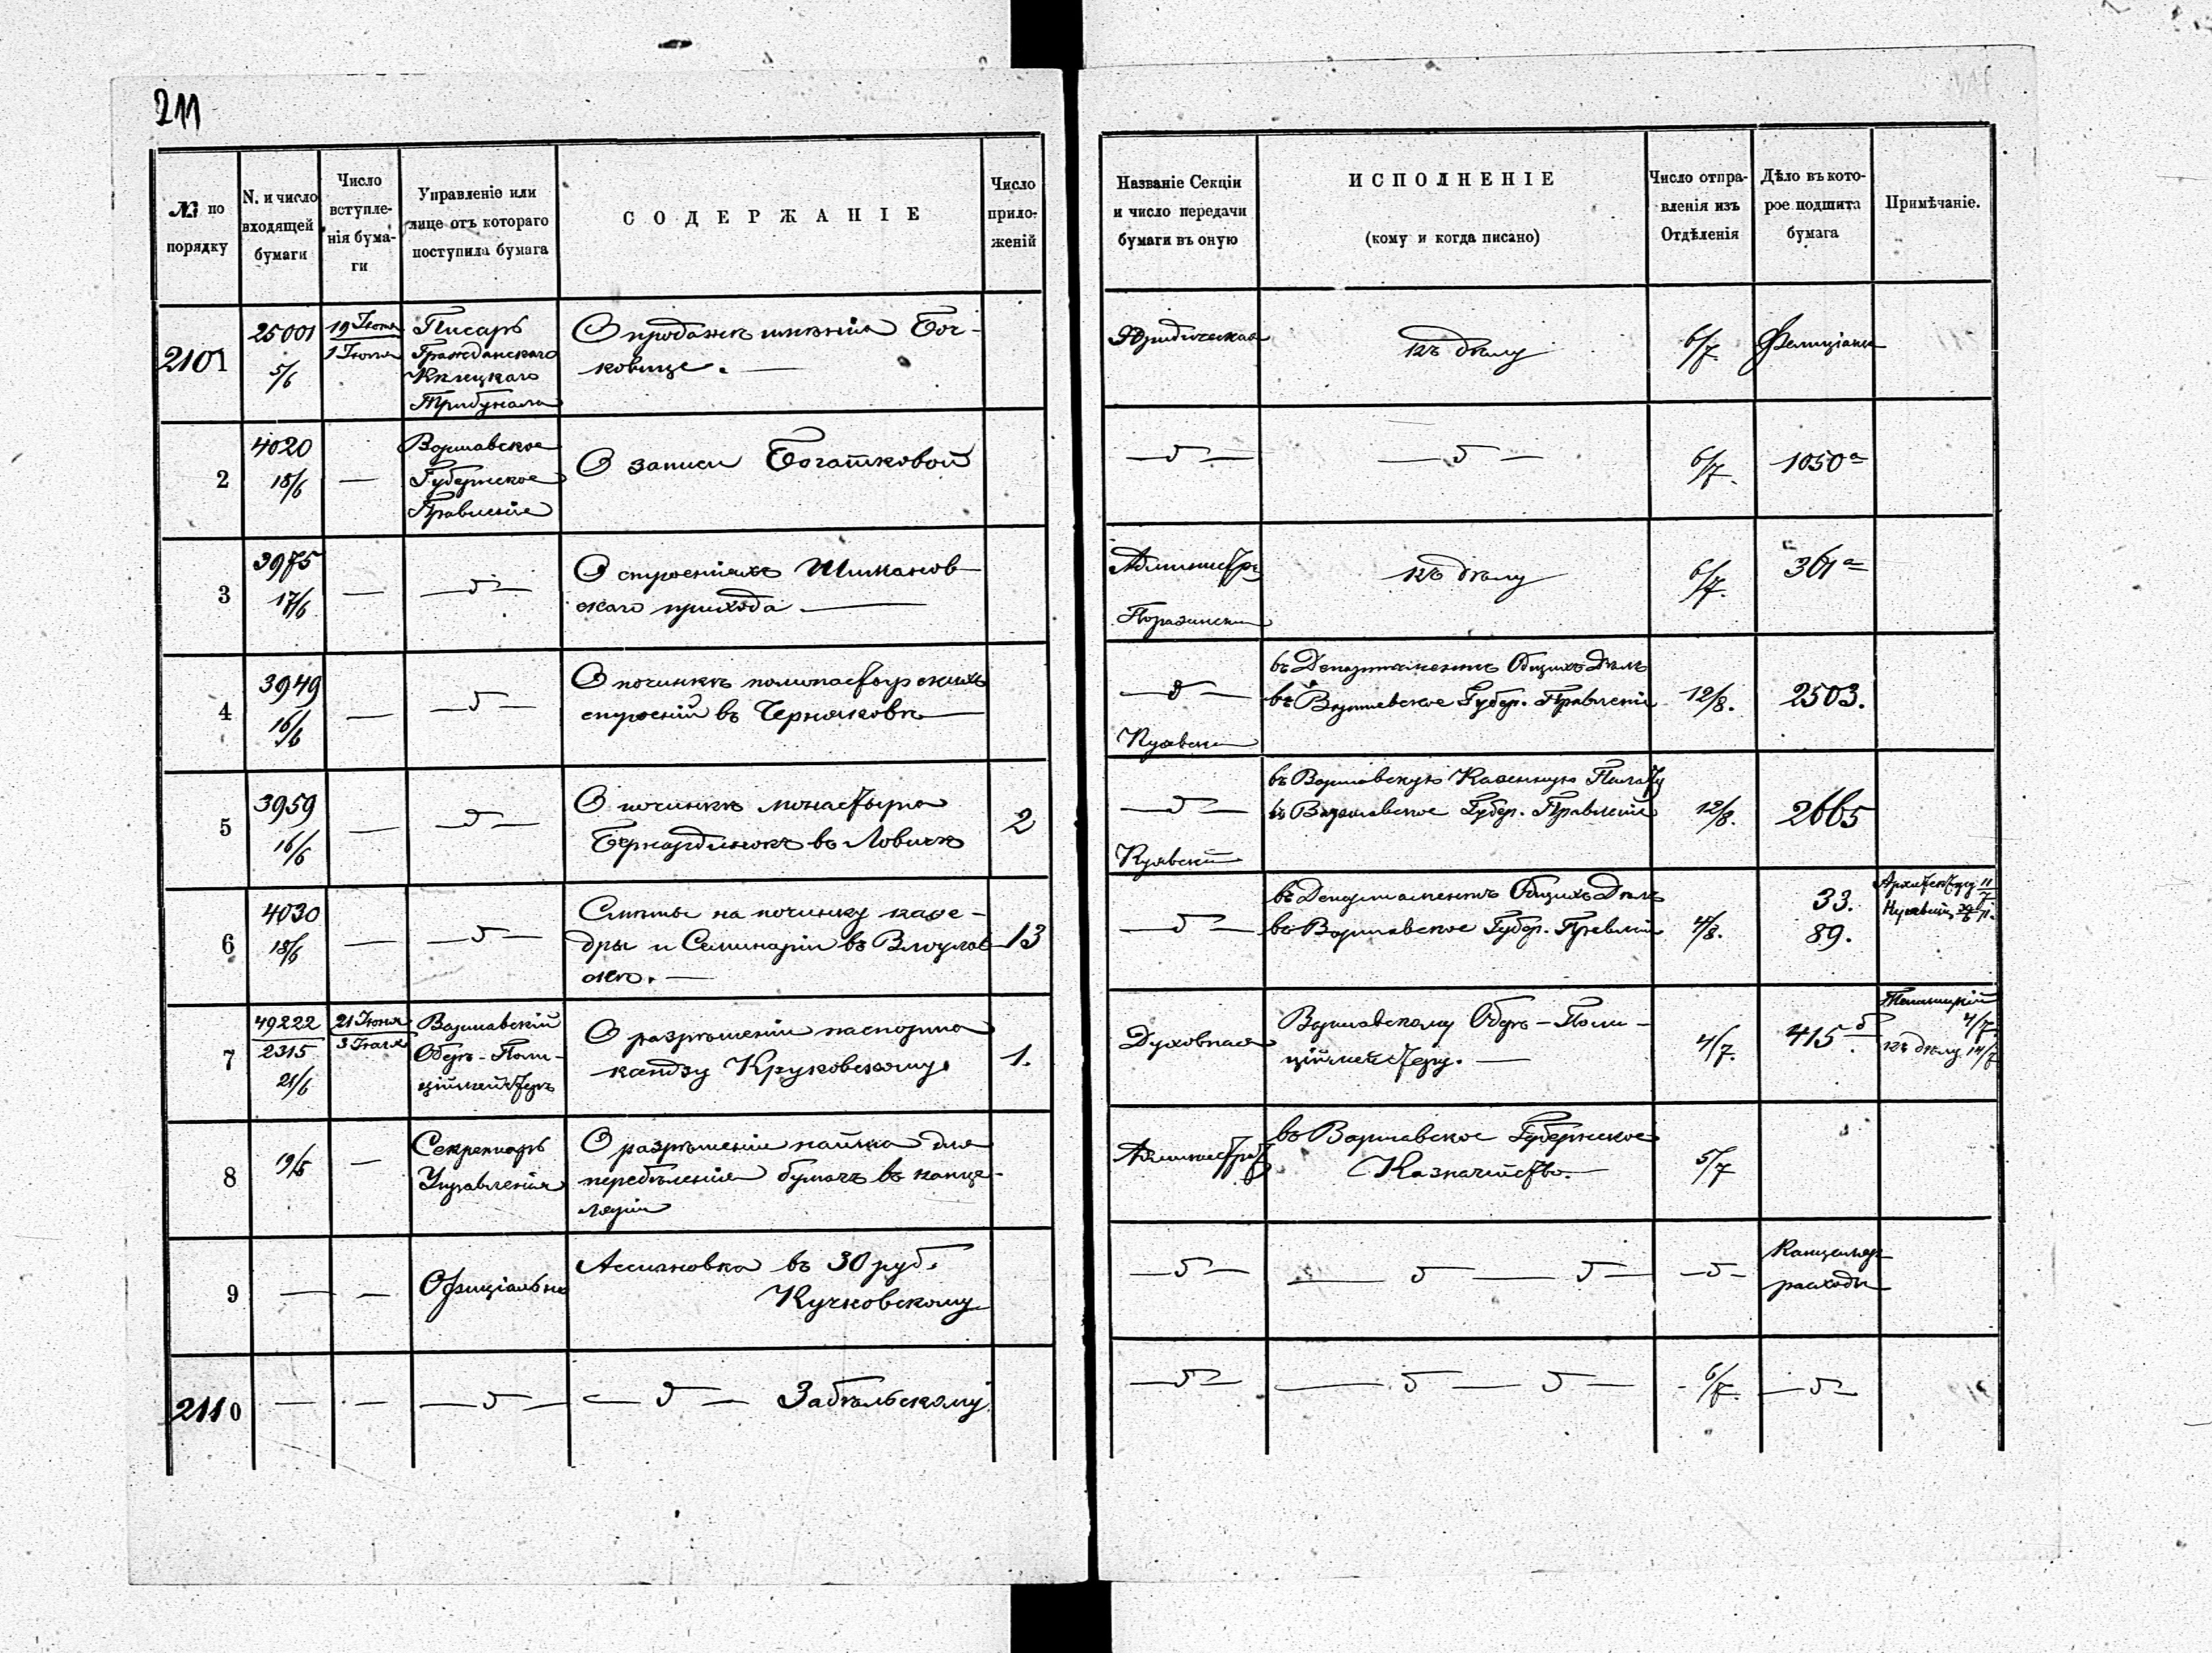 211
№ по порядку
N. и число входящей бумаги
Число вступленія бумаги
Управленіе или лице отъ котораго поступила бумага
СОДЕРЖАНІЕ
Число приложеній
Названіе Секціи и число передачи бумаги въ оную
ИСПОЛНЕНІЕ
(кому и когда писано)
Число отправленія изъ Отдѣленія
Дѣло въ которое подшита бумага
Примѣчаніе.
2101
25001
5/6
19 Іюня
1 Іюля
Писарь
Гражданскаго
Трибунала
О продажѣ имѣнія Боч-
ковице. —
Юридическая
къ дѣлу
6/7.
2
4020
18/6
—
Варшавское
Губернское
Правленіе
О записи Богатковой
— δ —
— δ —
6/7.
1050 а
3
3975
17/6
—
— δ —
О строеніяхъ Шиманов-
скаго прихода —
Администр.
къ дѣлу
6/7.
361 а
4
3949
16/6
—
— δ —
О починкѣ помонастырскихъ
строеній въ Черняковѣ —
— δ —
Куявскій
въ Департаментъ Общихъ Дѣлъ
въ Варшавское Губер. Правленіе
12/8.
2503.
5
3959
16/6
—
— δ —
О починкѣ монастыря
Бернардинокъ въ Ловичѣ
2
— δ —
Куявскій
въ Варшавскую Казенную Палату
въ Варшавское Губер. Правленіе
12/8.
2665
6
4030
18/6
—
— δ —
Смѣты на починку каѳе-
дры и Семинаріи въ Влоцлав-
скѣ. —
13
— δ —
въ Департаментъ Общихъ Дѣлъ
въ Варшавское Губер. Правленіе
4/8.
33.
89.
7
49222
2315
21/6
21 Іюня
3 Іюля
Варшавскій
Оберъ-Поли-
ційместеръ
О разрѣшеніи паспорта
ксендзу Круковскому.
1.
Духовная
Варшавскому Оберъ-Поли-
ційместеру. —
4/7.
415 б
4/7
къ дѣлу 14/7
8
19/5
—
Секретарь
Управленія
О разрѣшеніи найма для
перебѣленія бумагъ въ канце-
ляріи
Администр.
въ Варшавское Губернское
Казначейство. —
5/7
9
—
—
Офиціально
Ассигновка въ 30 руб.
Кучковскому
— δ —
— δ — δ —
— δ —
Канцеляр.
расходы
2110
—
—
— δ —
— δ — Забѣльскому
— δ —
— δ — δ —
6/7.
— δ —